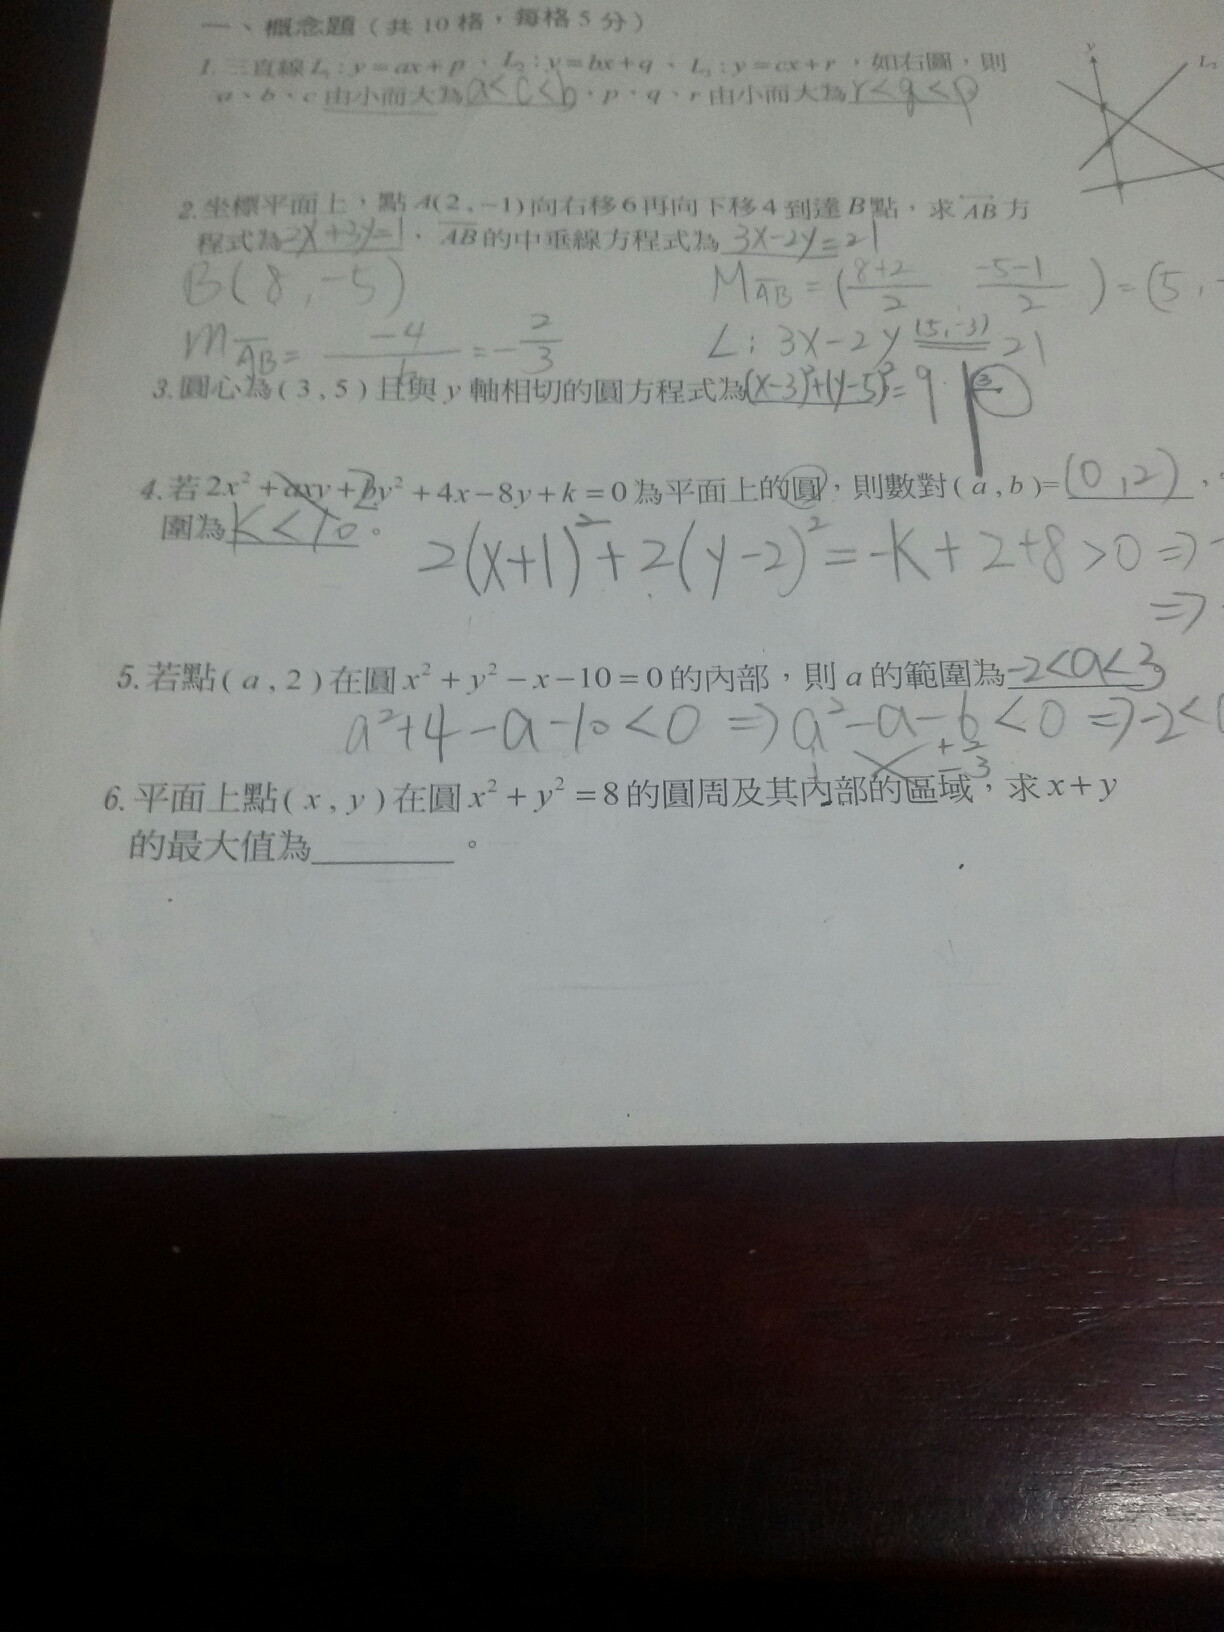 一、概念題（共10格，每格5分）
1. 三直線 L₁：y＝ax＋p、L₂：y＝bx＋q、L₃：y＝cx＋r，如右圖，則
y
L₂
a、b、c 由小而大為 a<c<b，p、q、r 由小而大為 r<q<p
2. 坐標平面上，點 A(2,−1)向右移6再向下移4到達B點，求 AB 方
程式為 2x+3y=1，AB的中垂線方程式為 3x-2y=21
B(8,-5)
M AB = (8+2/2, -5-1/2) = (5,
m AB = -4/6 = -2/3
L: 3x-2y (5,-3) 21
3. 圓心為(3,5)且與y軸相切的圓方程式為(x-3)²+(y-5)²=9. 3
4. 若2x²+axy+by²+4x−8y+k=0為平面上的圓，則數對(a,b)=(0,2)，
2
圍為 k<10。
2(x+1)²+2(y-2)²=-k+2+8>0⇒-
⇒
5. 若點(a,2)在圓x²+y²−x−10=0的內部，則a的範圍為 -2<a<3
a²+4-a-10<0⇒a²-a-6<0⇒-2<
1 +2
1 -3
6. 平面上點(x,y)在圓x²+y²=8的圓周及其內部的區域，求x+y
的最大值為________。